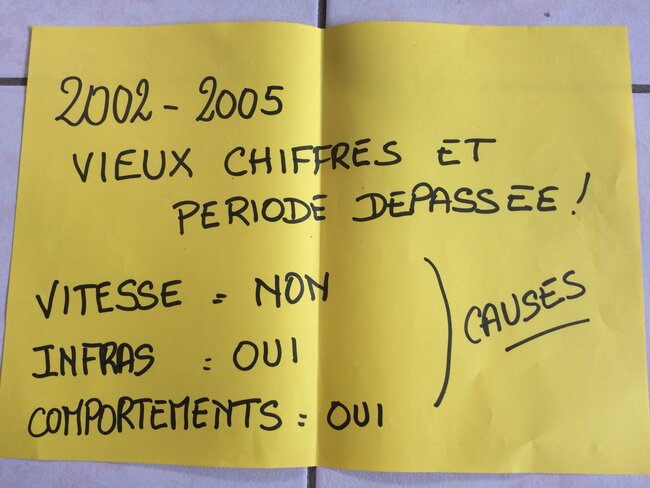 2002 - 2005
VIEUX CHIFFRES ET
PERIODE DEPASSEE !
VITESSE = NON
INFRAS = OUI
COMPORTEMENTS = OUI
) CAUSES